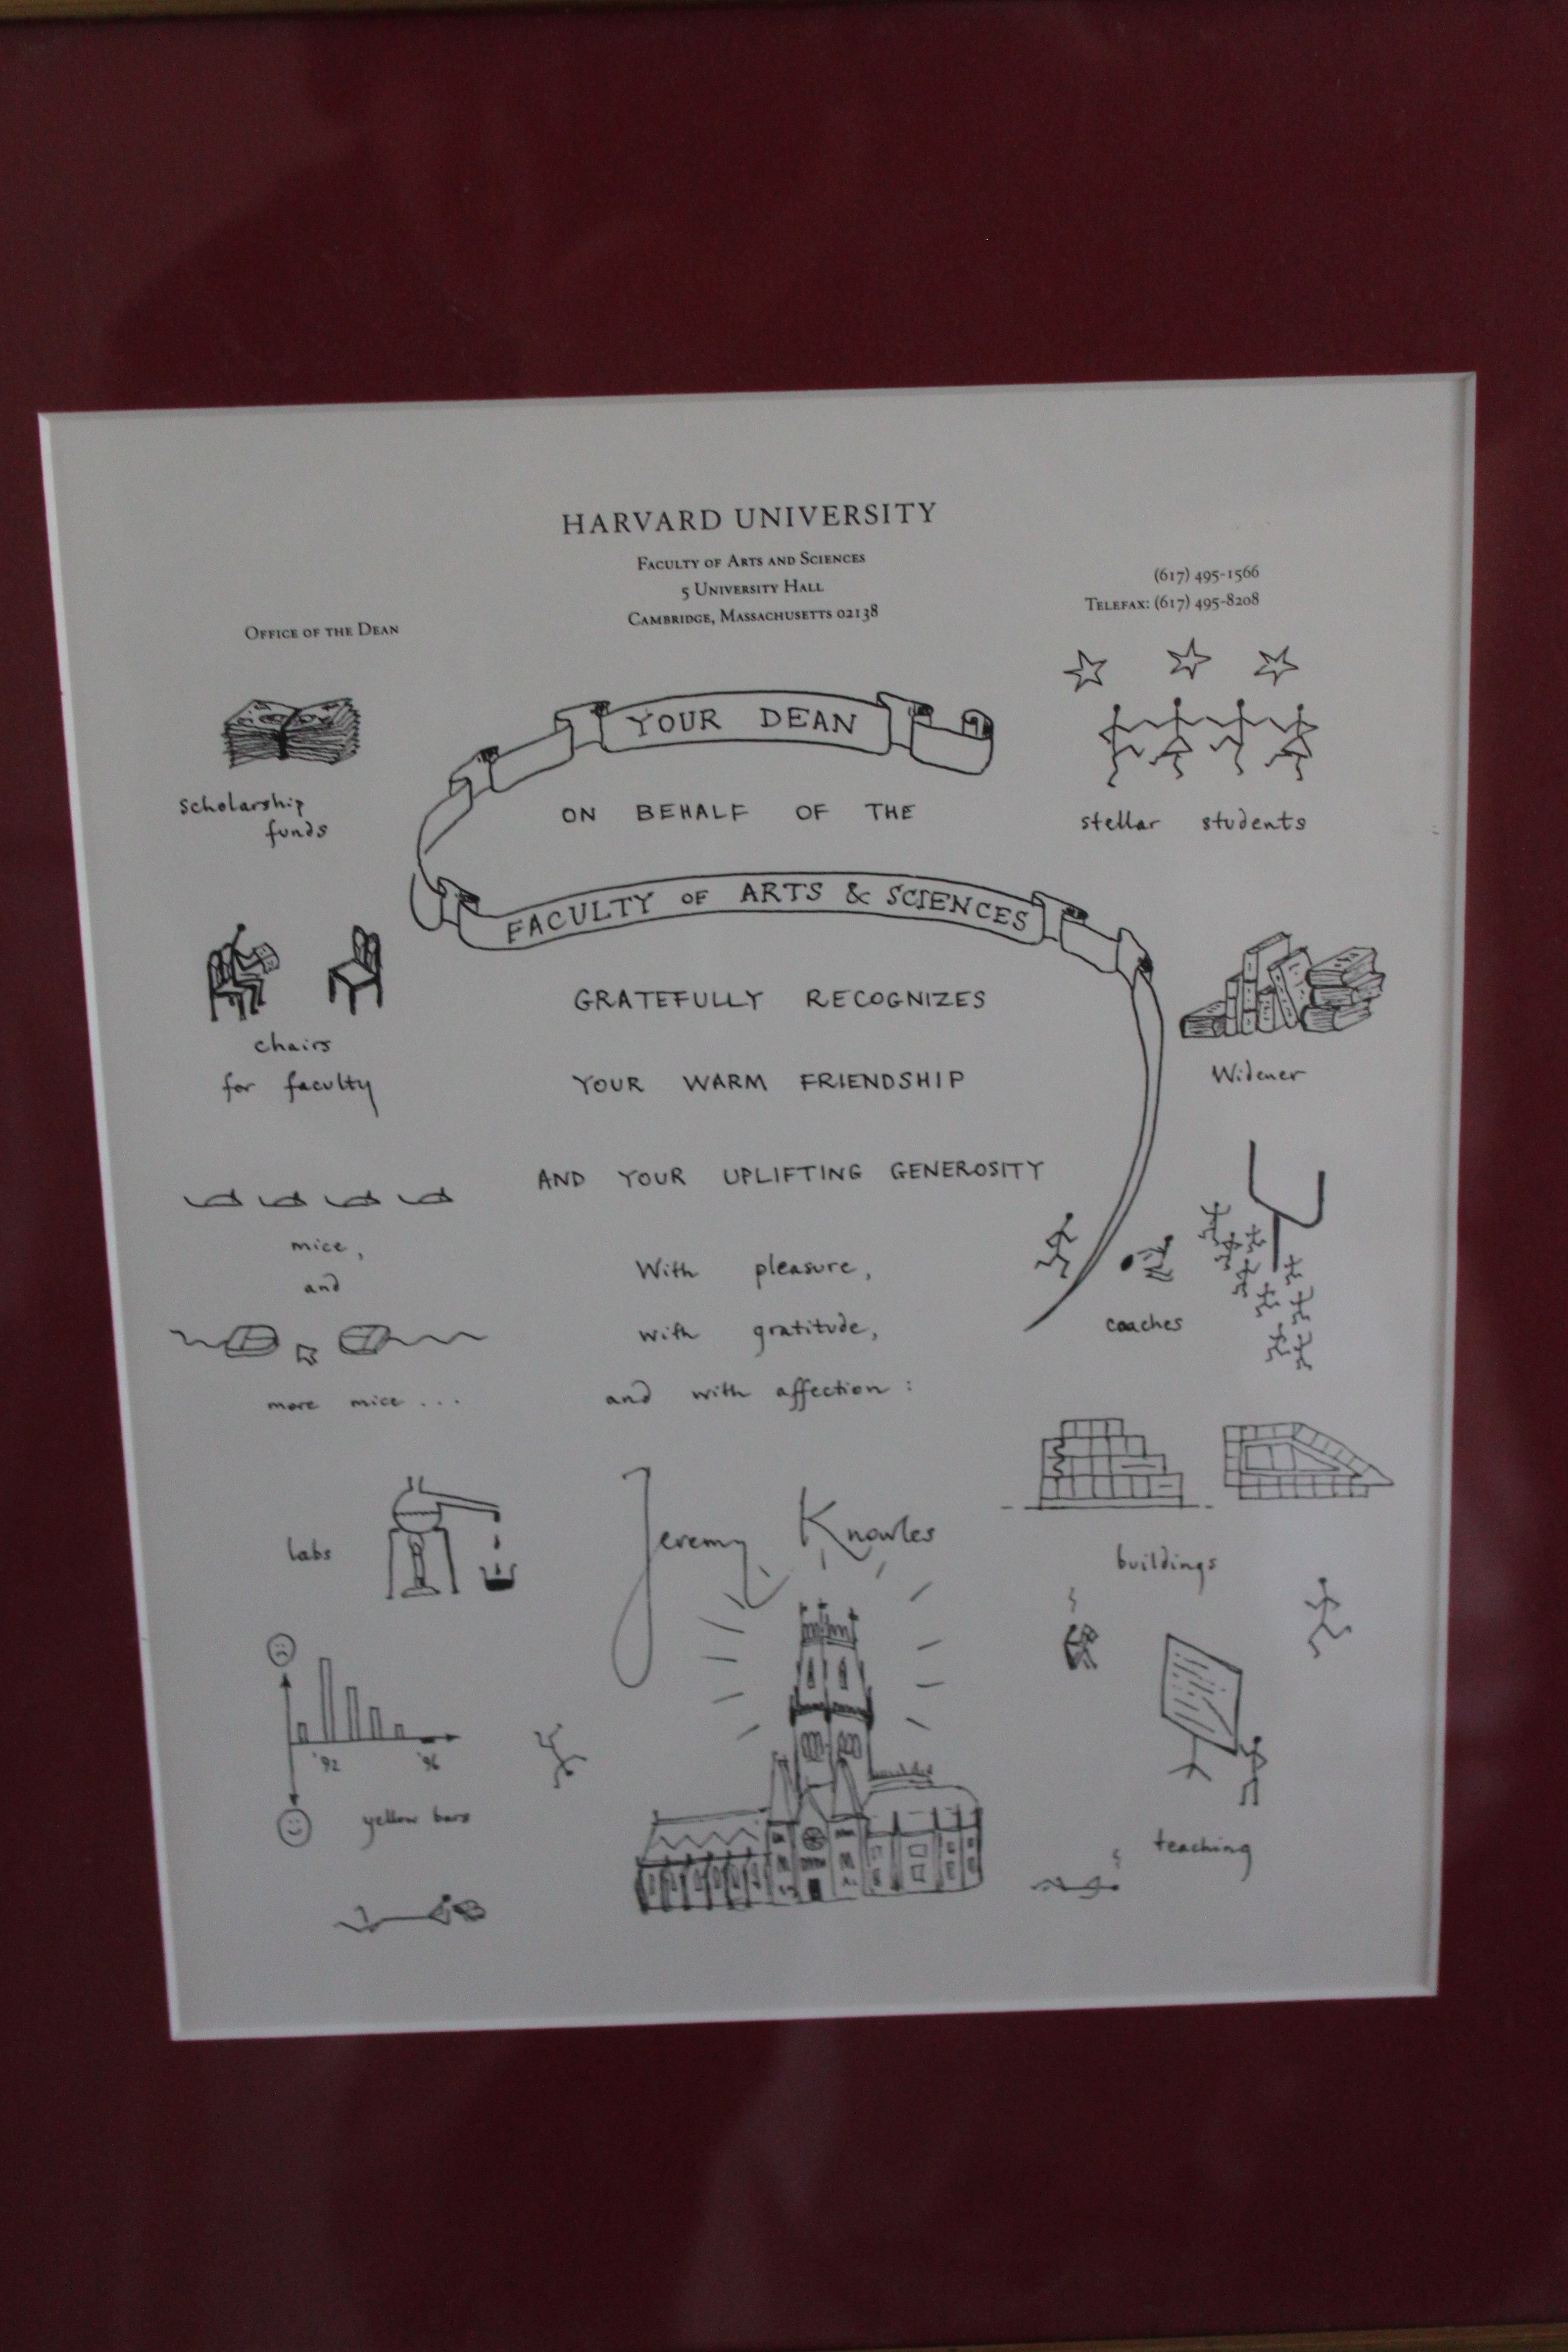 HARVARD UNIVERSITY
FACULTY OF ARTS AND SCIENCES
5 UNIVERSITY HALL
CAMBRIDGE, MASSACHUSETTS 02138
(617) 495-1566
TELEFAX: (617) 495-8208
OFFICE OF THE DEAN
YOUR DEAN
ON BEHALF OF THE
FACULTY OF ARTS & SCIENCES
GRATEFULLY RECOGNIZES
YOUR WARM FRIENDSHIP
AND YOUR UPLIFTING GENEROSITY
With pleasure,
with gratitude,
and with affection:
Jeremy Knowles
scholarship
funds
chairs
for faculty
mice,
and
more mice...
labs
'92 '96
yellow bars
stellar students
Widener
coaches
buildings
teaching